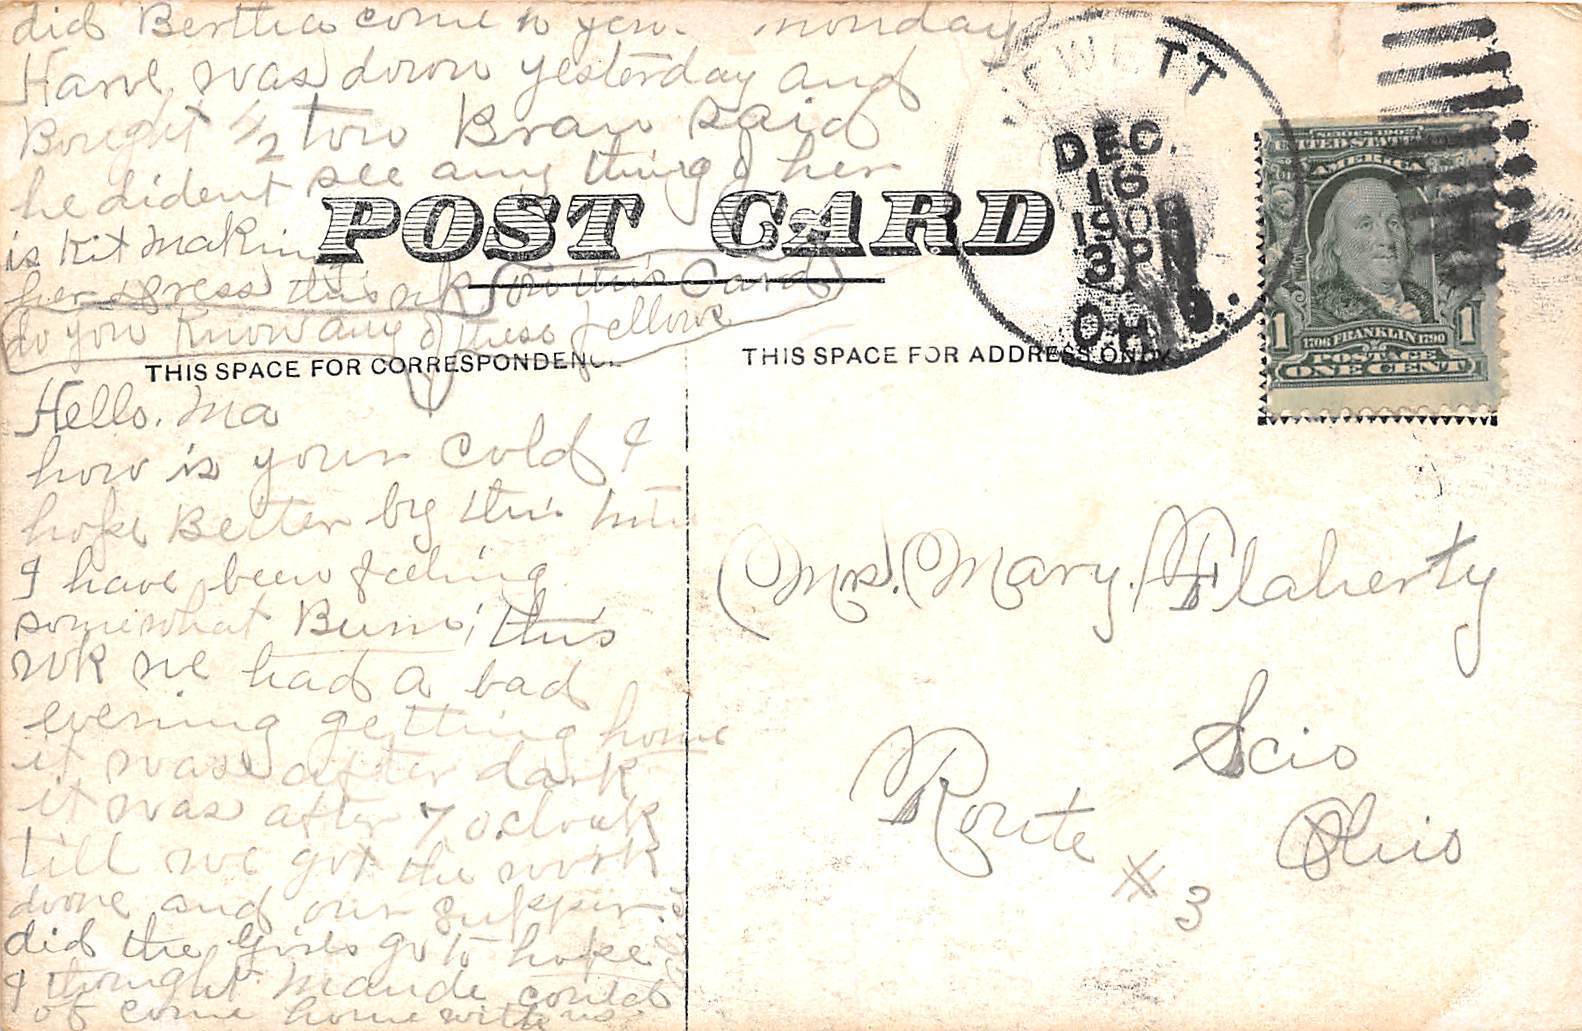 did Bertha come to you. monday
Harve was down yesterday and
Bought 1/2 ton Bran said
he dident see any thing of her
is Kit making
her dress this wk
on this Card
do you know any of these fellows
POST CARD
THIS SPACE FOR CORRESPONDENCE
THIS SPACE FOR ADDRESS ONLY
JEWETT
DEC.
16
190
3 PM
OHIO.
SERIES 1902
UNITED STATES OF
AMERICA
1 1
1706 FRANKLIN 1790
POSTAGE
ONE CENT
Hello. Ma
how is your cold I
hope Better by this time
I have been feeling
somewhat Bum, this
wk we had a bad
evening getting home
it was after dark
it was after 7 oclock
till we got the work
done and our supper.
did the Girls go to hope
I thought Maude could
of come home with us.
Mrs. Mary. Flaherty
Scio
Ohio
Route # 3